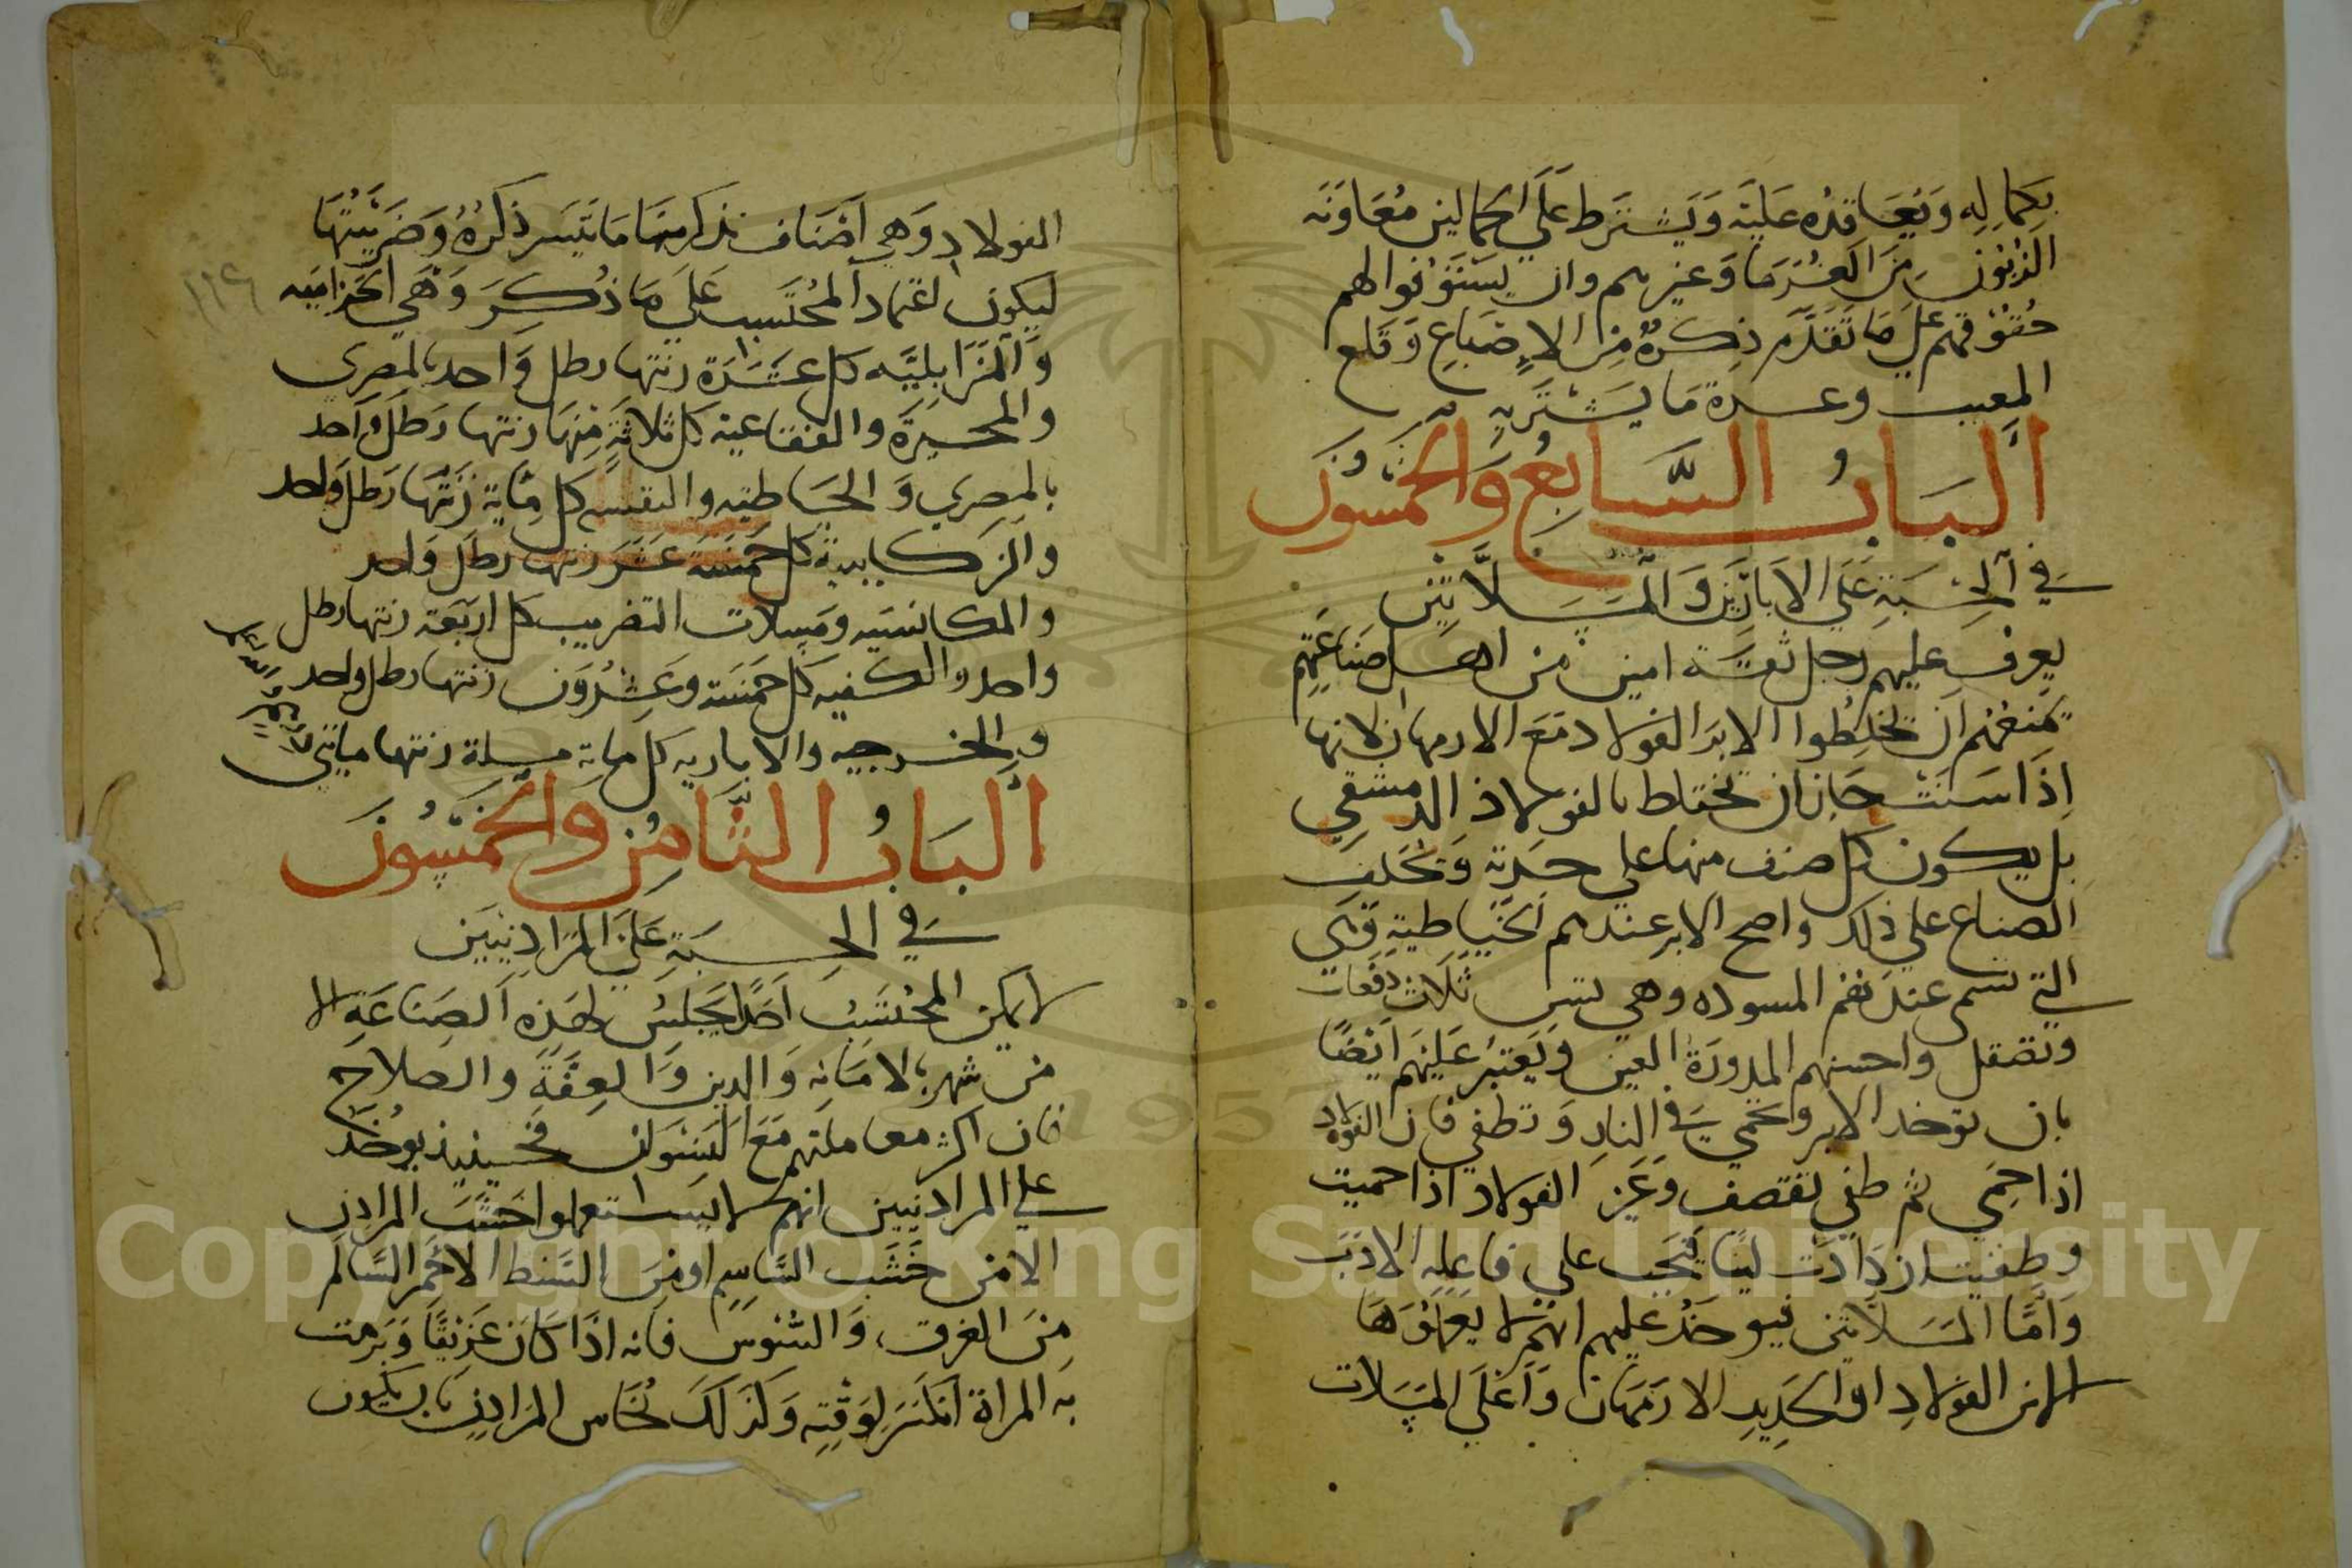 بكماله ويعاقده عليه ويشترط على الحمالين معاونه
الزبون من الغرما وغيرهم وان يستوفوا لهم
حقوقهم على ما تقدم ذكره من الاصباغ وقلع
المعيب وعدة ما يشتريه
الباب السابع والخمسون
في الحسبة على الابارين والمسلاتيين
يعرف عليهم رجل ثقة امين من اهل صناعتهم
يمنعهم ان يخلطوا الابر الفولاد مع الارمهان لانها
اذا سنت جاز ان تختلط بالفولاذ الدمشقي
بل يكون كل صنف منها على حدته ويحلف
الصناع على ذلك واصح الابر عندهم الخياطية وهي
التي تسمى عندهم المسوده وهي تسن ثلاث دفعات
وتصقل واحسنهم المدورة العين ويعتبر عليهم ايضا
بان توخد الابر وتحمي في النار وتطفي فان الفولاد
اذا حمي ثم طفي تقصف وغير الفولاد اذا حميت
وطفيت ازدادت لينا فيجب على فاعله الادب
واما المسلاتيين فيوخذ عليهم انهم لا يعملوها
الا من الفولاد او الحديد الارمهان واغلى المسلات
الفولاد وهي اصناف نذكر منها ما تيسر ذكره وضريبتها
ليكون اعتماد المحتسب على ما ذكر وهي الحزاميه
والمزابليه كل عشرة زنتها رطل واحد بالمصري
والمحيرة والفقاعية كل ثلاثة منها زنتها رطل واحد
بالمصري والخياطيه كل ماية زنتها رطل واحد
كل خمسة عشر زنتها رطل واحد
والمكانسيه ومسلات التضريب كل اربعة زنتها رطل
واحد والكفيه كل خمسة وعشرون زنتها رطل واحد
والخرجيه والاباريه كل ماية مسلة زنتها مايتي
الباب الثامن والخمسون
في الحسبة على المرادنيين
لا يمكن المحتسب احدا يجلس لهذه الصناعة الا
من شهر بالامانه والدين والعفة والصلاح
فان اكثر معاملتهم مع النسوان فحينيذ يوخذ
على المرادنيين انهم لا يستعملوا خشب المرادن
الا من خشب الساسم او من السنط الاحمر السالم
من الغرق والسوس فانه اذا كان غريقا وبرمت
به المراة انكسر لوقته وكذلك نحاس المرادن بان يكون